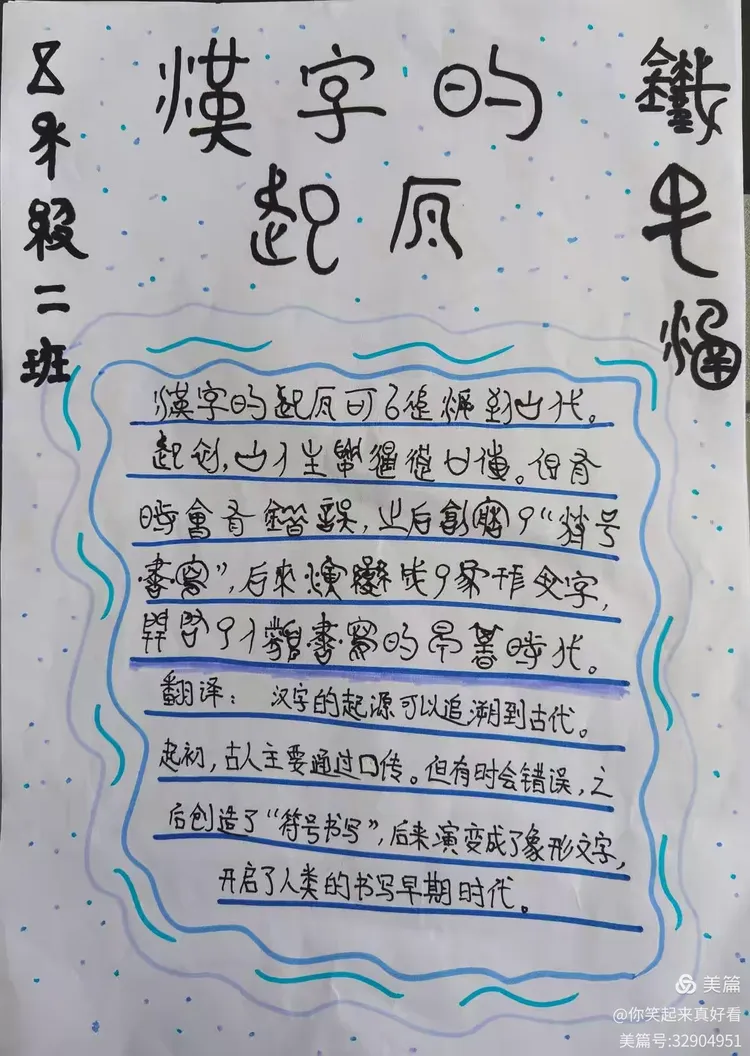 漢字的
起原
五年級二班
漢字的起原可以追溯到古代。
起初，古人主要通過口傳。但有
時會有錯誤，之后創造了“符号
書寫”，后來演變成了象形文字，
開啓了人類書寫的早期時代。
翻译：汉字的起源可以追溯到古代。
起初，古人主要通过口传。但有时会错误，之
后创造了“符号书写”，后来演变成了象形文字，
开启了人类的书写早期时代。
美篇
@你笑起来真好看
美篇号:32904951